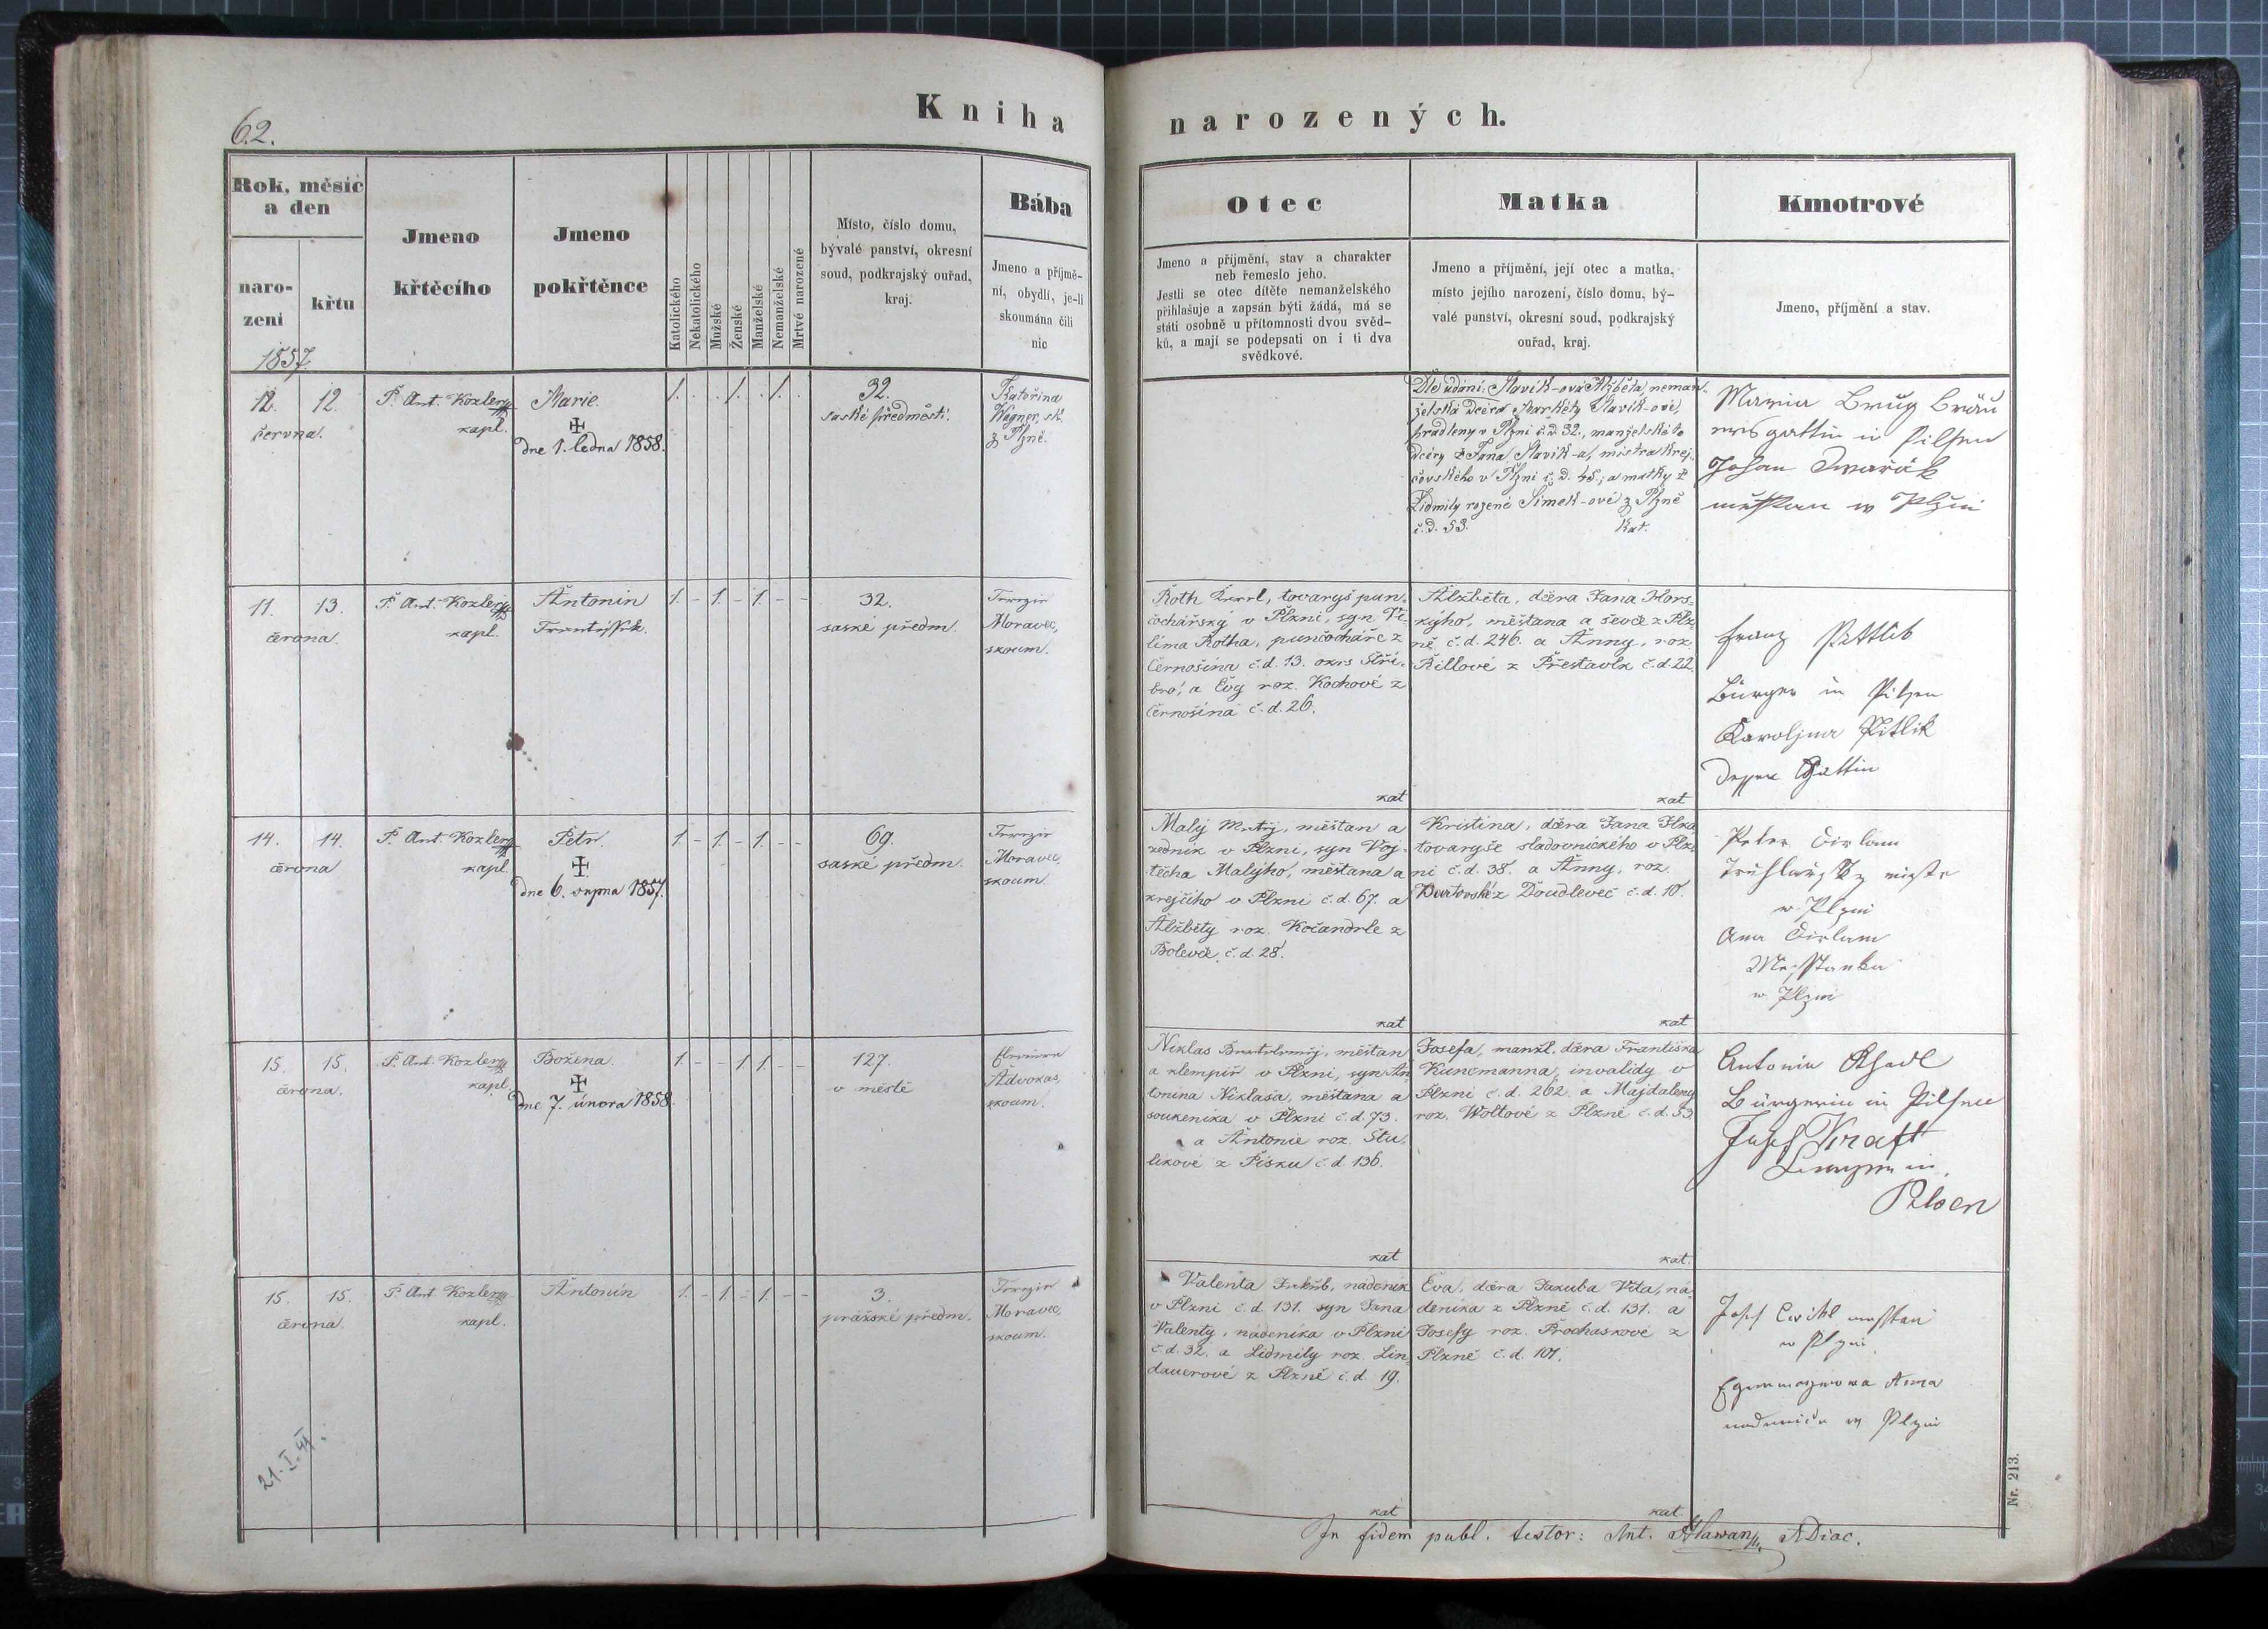 Kniha narozených.
62.
Rok, měsíc
a den
naro-
zení
křtu
1857.
Jmeno
křtěcího
Jmeno
pokřtěnce
Katolického
Nekatolického
Mužské
Ženské
Manželské
Nemanželské
Mrtvé narozené
Místo, číslo domu,
bývalé panství, okresní
soud, podkrajský ouřad,
kraj.
Bába
Jmeno a příjmě-
ní, obydlí, je-li
skoumána čili
nic
Otec
Jmeno a příjmění, stav a charakter
neb řemeslo jeho.
Jestli se otec dítěte nemanželského
přihlašuje a zapsán býti žádá, má se
státi osobně u přítomnosti dvou svěd-
ků, a mají se podepsati on i ti dva
svědkové.
Matka
Jmeno a příjmění, její otec a matka,
místo jejího narození, číslo domu, bý-
valé panství, okresní soud, podkrajský
ouřad, kraj.
Kmotrové
Jmeno, příjmění a stav.
12. 12.
června.
P. Ant. Kozler
kapl.
Marie.
dne 1. ledna 1858.
1. . . 1. . 1. .
32.
saské předměstí.
Kateřina
Wagner, sk.
z Plzně.
Dle udání: Slavík-ová Alžběta, neman-
želská dcera Markéty Slavík-ové,
pradleny v Plzni č.d. 32., manželské to
dcery † Jana Slavík-a, mistra krej-
čovského v Plzni č.d. 45., a matky †
Lidmily rozené Šimek-ové z Plzně
č.d. 53. kat.
Maria Brug Bräu
in Pilsen
Johan Dwařák
w Plzni
11. 13.
června.
P. Ant. Kozler
kapl.
Antonín
František.
1. - 1. - 1. - -
32.
saské předm.
Terezie
Moravec,
skoum.
Roth Karl, tovaryš pun-
čochářský v Plzni, syn Vi-
léma Rotha, punčocháře z
Černošína č.d. 13. okrs Stří-
bro, a Evy roz. Kochové z
Černošína č.d. 26.
kat
Alžběta, dcera Jana Hors-
kýho, měštana a ševce z Plz-
ně č.d. 246. a Anny, roz.
Rillové z Přestavlk č.d. 22.
kat
Franz Pittlik
Bürger in Pilsen
Karolina Pitlik
dessen Gattin
14. 14.
června
P. Ant. Kozler
kapl.
Petr.
dne 6. srpna 1857.
1. - 1. - 1. - -
69.
saské předm.
Terezie
Moravec,
skoum.
Malý Matěj, měštan a
zedník v Plzni, syn Voj-
těcha Malýho, měštana a
krejčího v Plzni č.d. 67. a
Alžběty roz. Kočandrle z
Bolevče č.d. 28.
kat
Kristina, dcera Jana
tovaryše sladovnického v Plz-
ni č.d. 38. a Anny, roz.
z Doudlevec č.d. 10.
kat
Peter
w Plzni
w Plzni
15. 15.
června.
P. Ant. Kozler
kapl.
Božena.
dne 7. února 1858.
1. - - 1. 1. - -
127.
v městě
Advokas,
skoum.
Niklas Bartoloměj, měštan
a klempíř v Plzni, syn An-
tonína Niklasa, měštana a
soukeníka v Plzni č.d. 73.
a Antonie roz. Štu-
likové z Písku č.d. 136.
kat
Josefa, manžl. dcera Františka
Kuncmanna, invalidy v
Plzni č.d. 262. a Majdaleny
roz. Woltové z Plzně č.d. 53.
kat.
Antonia
Bürgerin in Pilsen
Josef Kraft
in
Pilsen
15. 15.
června.
P. Ant. Kozler
kapl.
Antonín
1. - 1. - 1. - -
3.
pražské předm.
Terezie
Moravec,
skoum.
Valenta Jakub, nádeník
v Plzni č.d. 131. syn Jana
Valenty, nádeníka v Plzni
č.d. 32. a Lidmily roz. Lin-
dauerové z Plzně č.d. 19.
kat
Eva, dcera Jakuba Víta, ná-
deníka z Plzně č.d. 131. a
Josefy roz. Prochaskové z
Plzně č.d. 101.
kat.
Josef
w Plzni
Anna
w Plzni
21. I. 41.
Nr. 213.
In fidem publ. testor: Ant. Hlawan, ADiac.